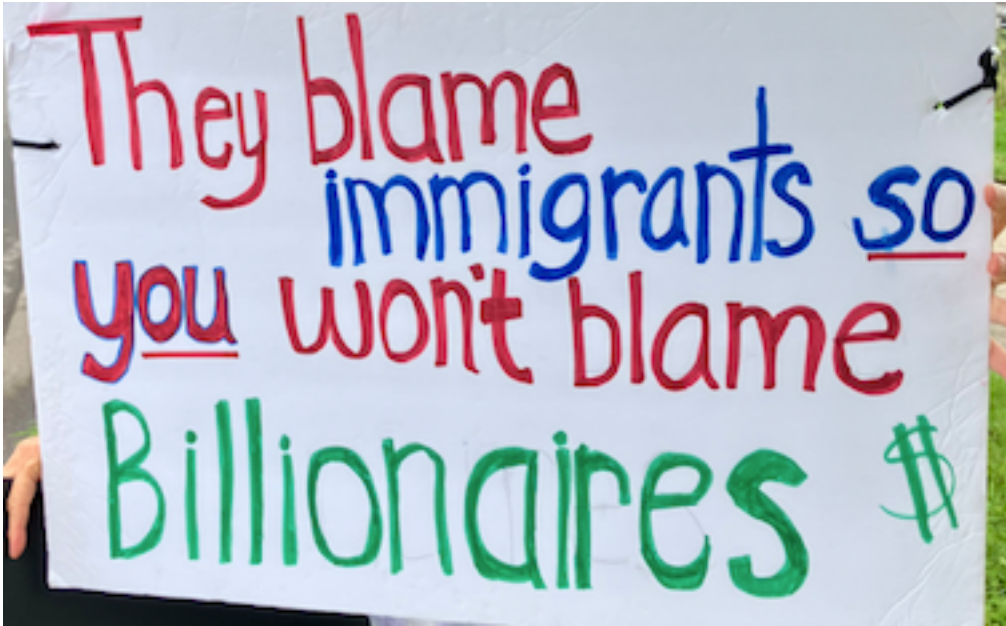 They blame
immigrants so
you won't blame
Billionaires $